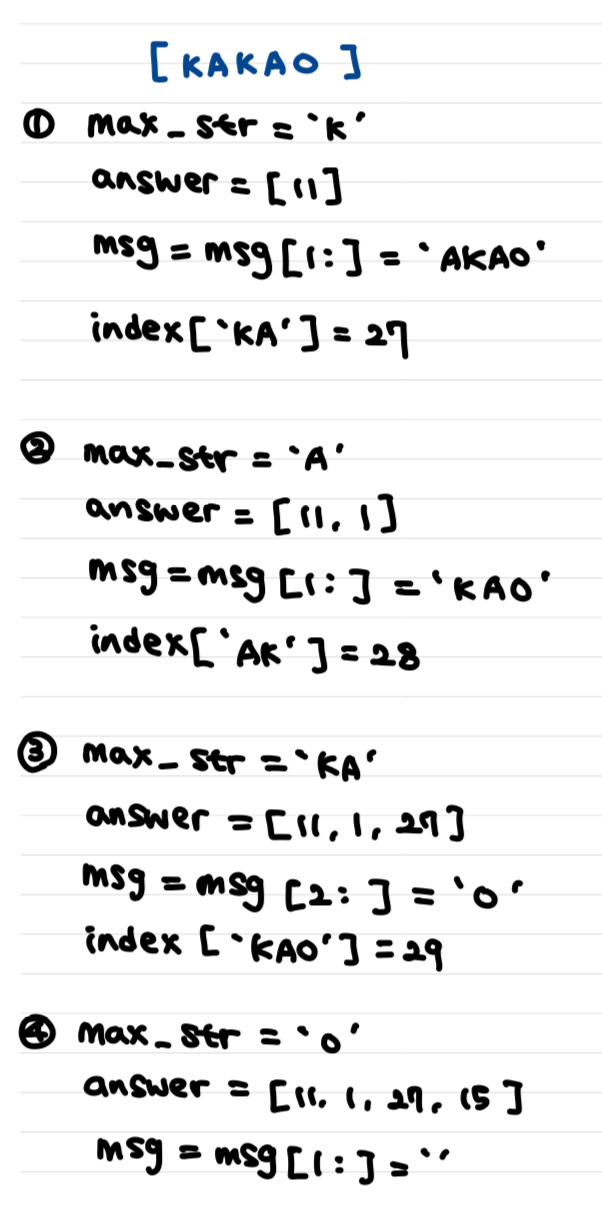 [KAKAO]
① max_str = `K'
answer = [11]
msg = msg[1:] = `AKAO'
index[`KA'] = 27
② max_str = `A'
answer = [11, 1]
msg = msg[1:] = `KAO'
index[`AK'] = 28
③ max_str = `KA'
answer = [11, 1, 27]
msg = msg[2:] = `O'
index [`KAO'] = 29
④ max_str = `O'
answer = [11, 1, 27, 15]
msg = msg[1:] = `'